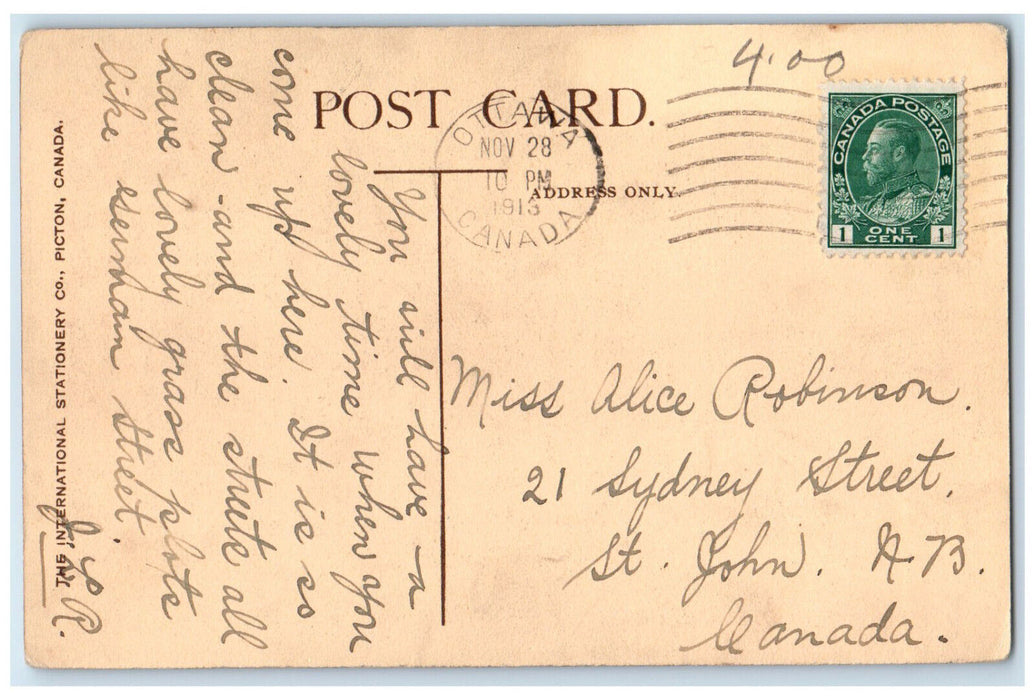 4.00
POST CARD.
OTTAWA
NOV 28
10 PM
1913
CANADA
CANADA POSTAGE
1 ONE CENT 1
ADDRESS ONLY.
You will have a
lovely time when you
come up here. It is so
clean - and the streets all
have lovely grass plots
like german street.
R.
Miss Alice Robinson.
21 Sydney Street.
St. John. N.B.
Canada.
THE INTERNATIONAL STATIONERY CO., PICTON, CANADA.